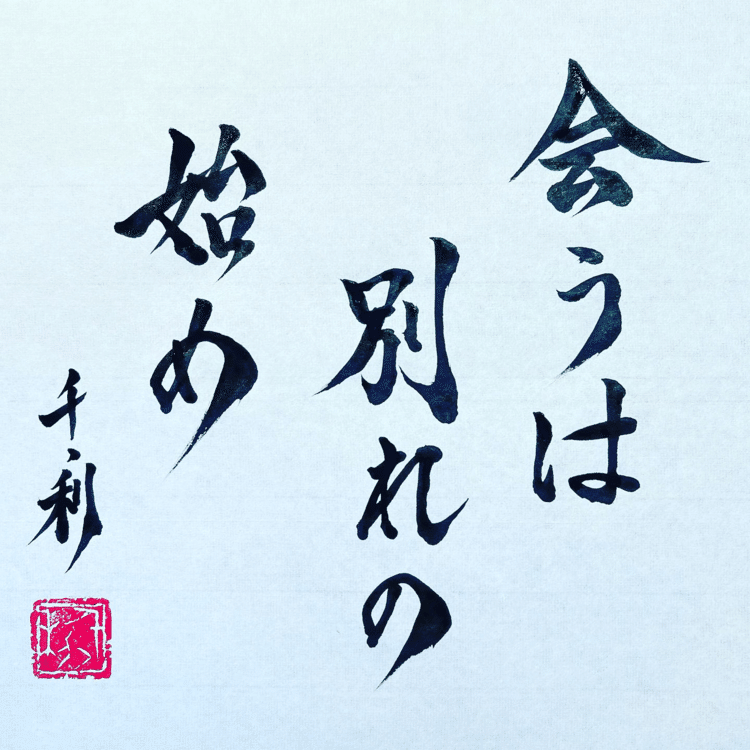 会うは
別れの
始め
千利